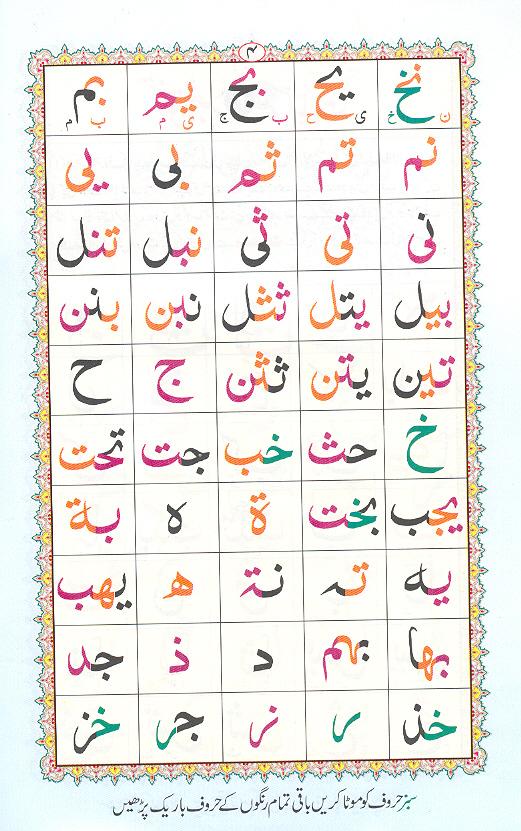 ۴
نخ یح بج یم بم
ن خ ی ح ب ج ی م ب م
نم تم ثم بی یی
نی تی ثی نبل تنل
بیل یتل نثل نبن بنن
تین یتن ثثن ج ح
خ حث خب جت تحت
یجب بخت ة ه بة
یه تہ نة ھ یھب
بھا بھم د ذ جد
خذ ر نر جر خز
سبز حروف کو موٹا کریں باقی تمام رنگوں کے حروف باریک پڑھیں